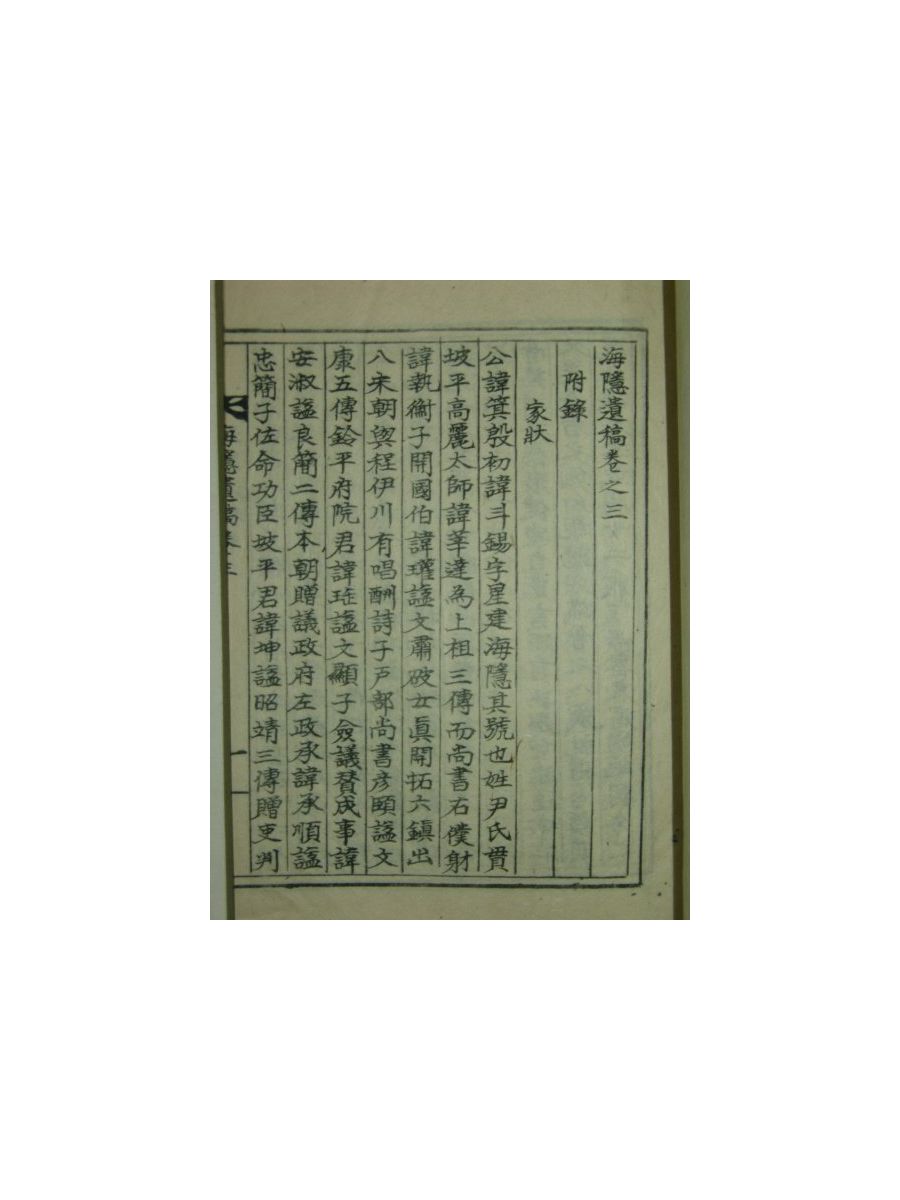 海隱遺稿卷之三
附錄
家狀
公諱箕殷初諱斗錫字星建海隱其號也姓尹氏貫
坡平高麗太師諱莘達為上祖三傳而尚書右僕射
諱執衡子開國伯諱瓘諡文肅破女眞開拓六鎭出
入宋朝與程伊川有唱酬詩子戶部尚書彦頤諡文
康五傳鈴平府院君諱珤諡文顯子僉議賛成事諱
安淑諡良簡二傳本朝贈議政府左政承諱承順諡
忠簡子佐命功臣坡平君諱坤諡昭靖三傳贈吏判
海隱遺稿卷之三
一